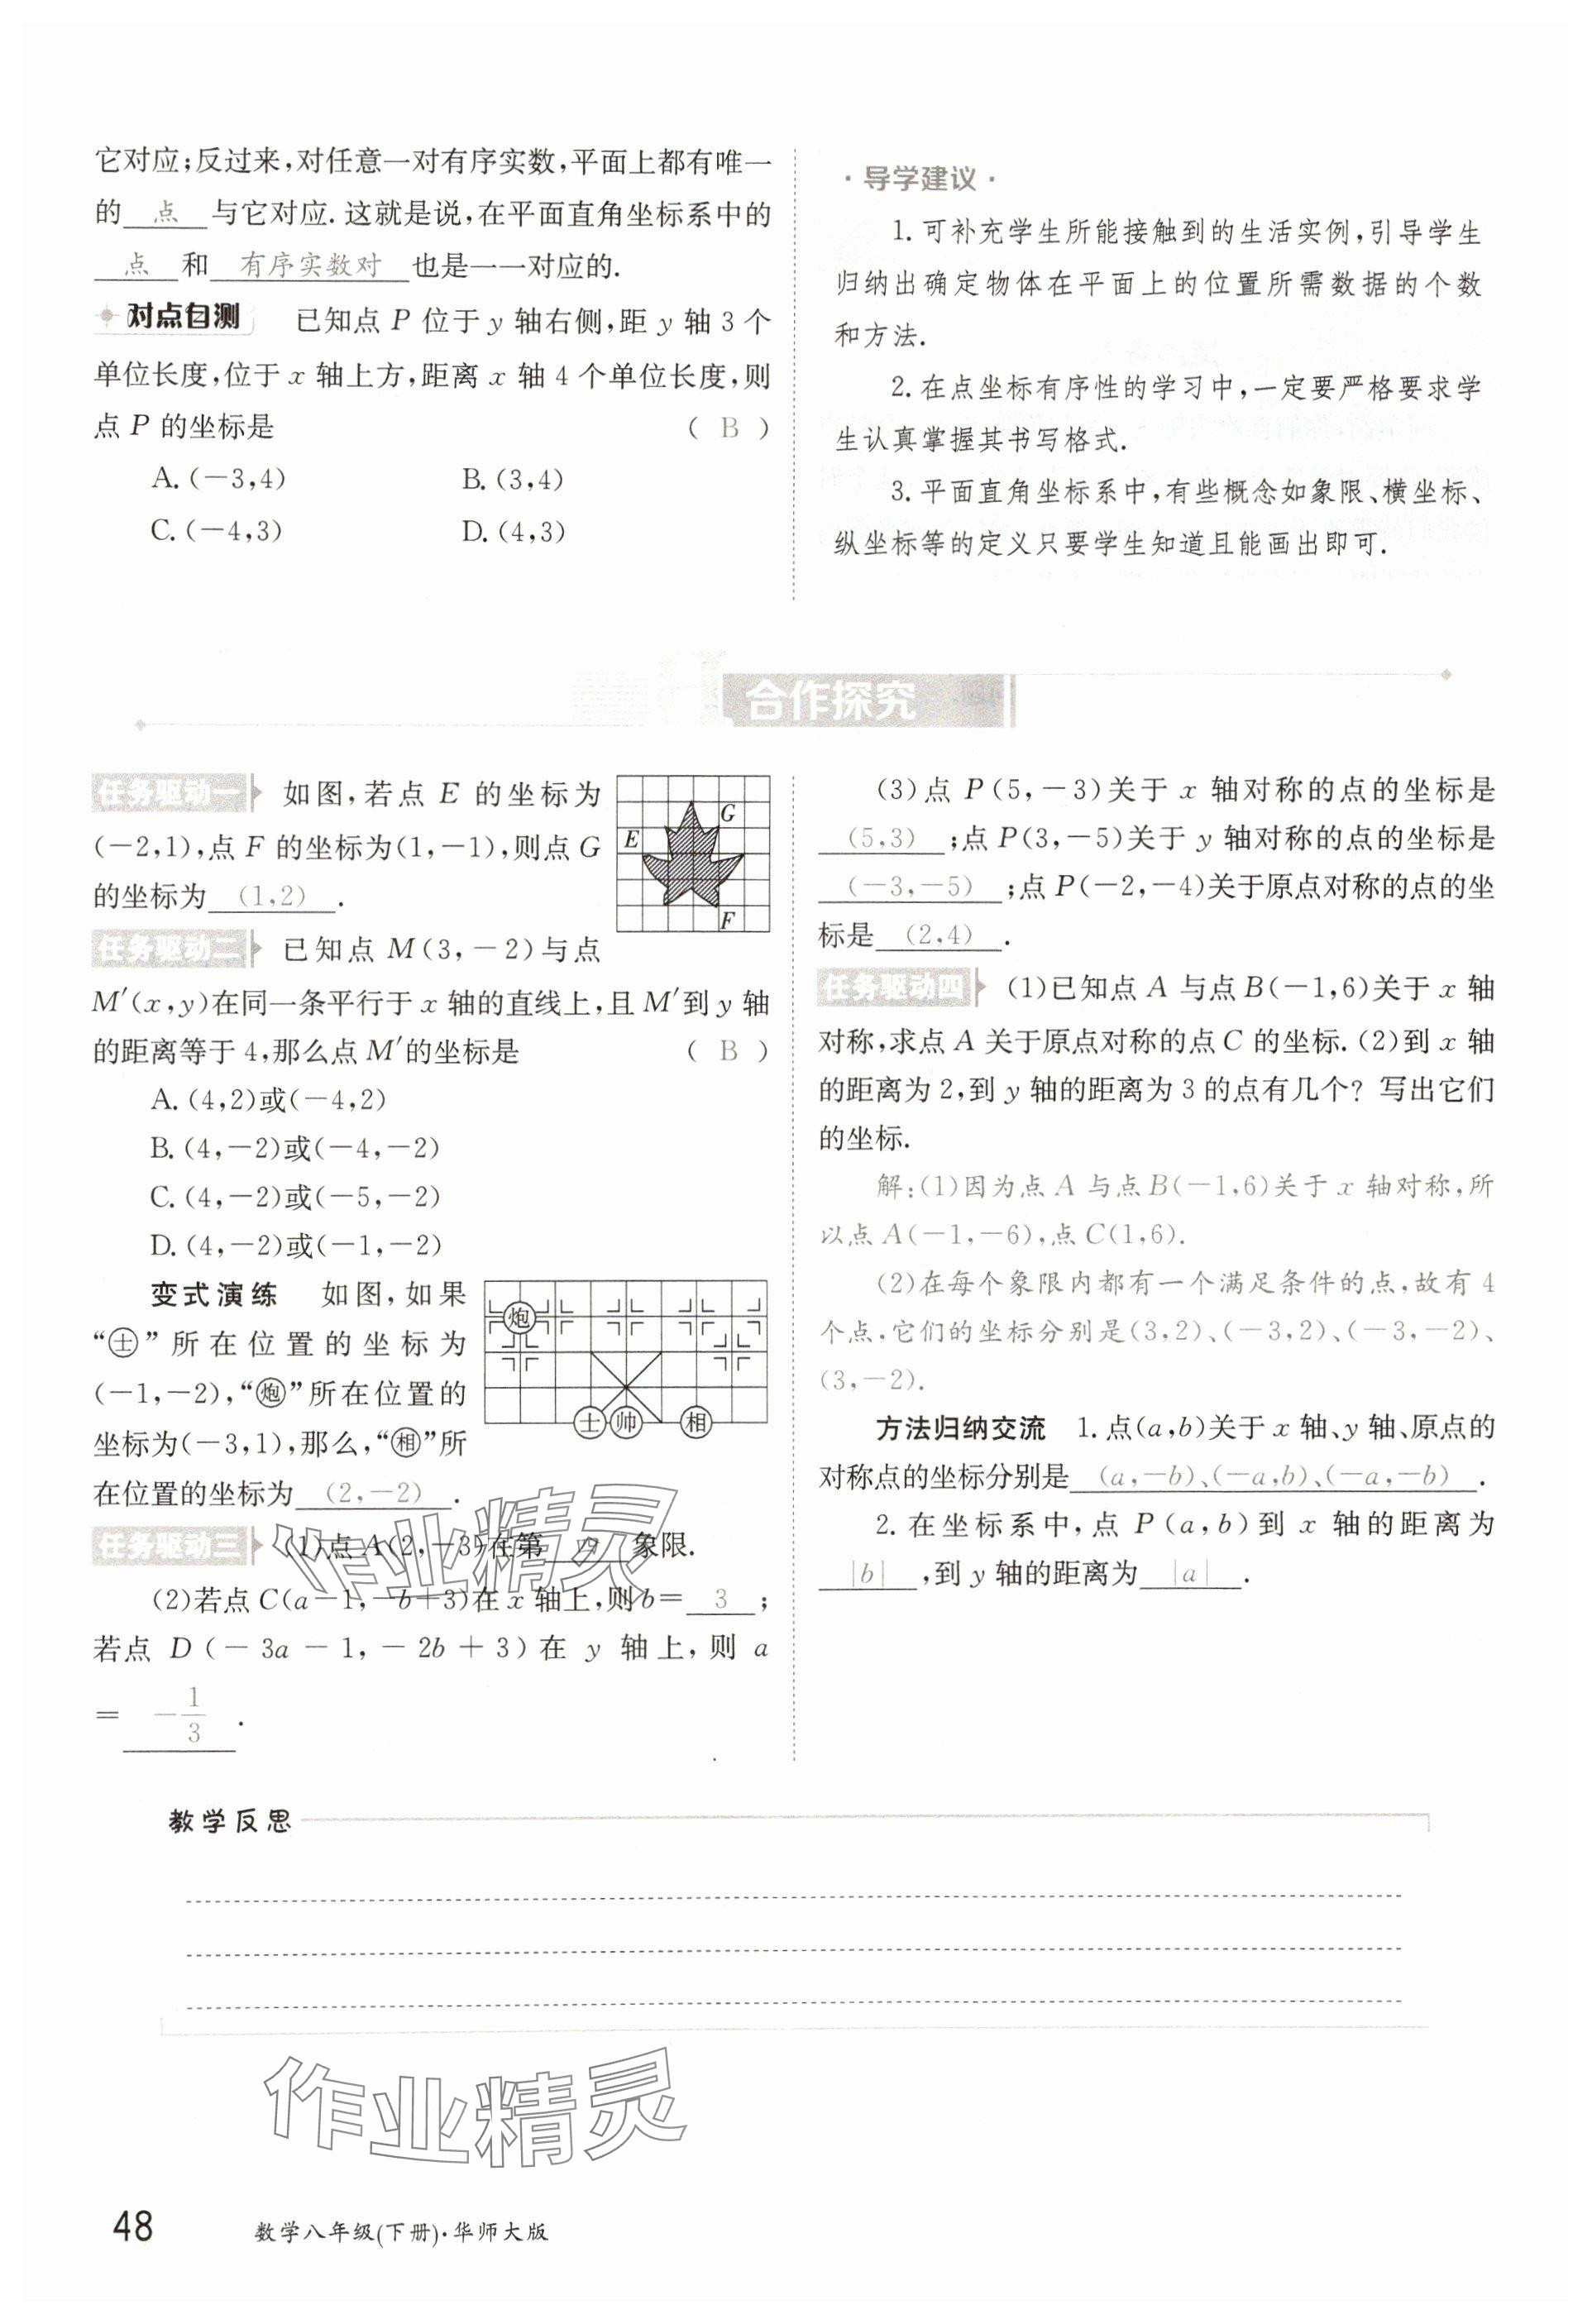 它对应;反过来,对任意一对有序实数,平面上都有唯一
的 点 与它对应. 这就是说,在平面直角坐标系中的
点 和 有序实数对 也是一一对应的.
对点自测 已知点 P 位于 y 轴右侧,距 y 轴 3 个
单位长度,位于 x 轴上方,距离 x 轴 4 个单位长度,则
点 P 的坐标是 ( B )
A. (-3,4) B. (3,4)
C. (-4,3) D. (4,3)
· 导学建议 ·
1. 可补充学生所能接触到的生活实例,引导学生
归纳出确定物体在平面上的位置所需数据的个数
和方法.
2. 在点坐标有序性的学习中,一定要严格要求学
生认真掌握其书写格式.
3. 平面直角坐标系中,有些概念如象限、横坐标、
纵坐标等的定义只要学生知道且能画出即可.
合作探究
任务驱动一 如图,若点 E 的坐标为
(-2,1),点 F 的坐标为(1,-1),则点 G
的坐标为 (1,2) .
E
G
F
任务驱动二 已知点 M(3,-2)与点
M′(x,y)在同一条平行于 x 轴的直线上,且 M′到 y 轴
的距离等于 4,那么点 M′的坐标是 ( B )
A. (4,2)或(-4,2)
B. (4,-2)或(-4,-2)
C. (4,-2)或(-5,-2)
D. (4,-2)或(-1,-2)
变式演练 如图,如果
“士”所在位置的坐标为
(-1,-2),“炮”所在位置的
坐标为(-3,1),那么,“相”所
在位置的坐标为 (2,-2) .
炮
士 帅 相
任务驱动三 (1)点 A(2,-3)在第 四 象限.
(2)若点 C(a-1,-b+3)在 x 轴上,则 b= 3 ;
若点 D(-3a-1,-2b+3)在 y 轴上,则 a
= -1/3 .
(3)点 P(5,-3)关于 x 轴对称的点的坐标是
(5,3) ;点 P(3,-5)关于 y 轴对称的点的坐标是
(-3,-5) ;点 P(-2,-4)关于原点对称的点的坐
标是 (2,4) .
任务驱动四 (1)已知点 A 与点 B(-1,6)关于 x 轴
对称,求点 A 关于原点对称的点 C 的坐标. (2)到 x 轴
的距离为 2,到 y 轴的距离为 3 的点有几个? 写出它们
的坐标.
解:(1)因为点 A 与点 B(-1,6)关于 x 轴对称,所
以点 A(-1,-6),点 C(1,6).
(2)在每个象限内都有一个满足条件的点,故有 4
个点,它们的坐标分别是(3,2)、(-3,2)、(-3,-2)、
(3,-2).
方法归纳交流 1. 点(a,b)关于 x 轴、y 轴、原点的
对称点的坐标分别是 (a,-b)、(-a,b)、(-a,-b) .
2. 在坐标系中,点 P(a,b)到 x 轴的距离为
|b| ,到 y 轴的距离为 |a| .
作业精灵
教学反思
作业精灵
48 数学八年级(下册)·华师大版